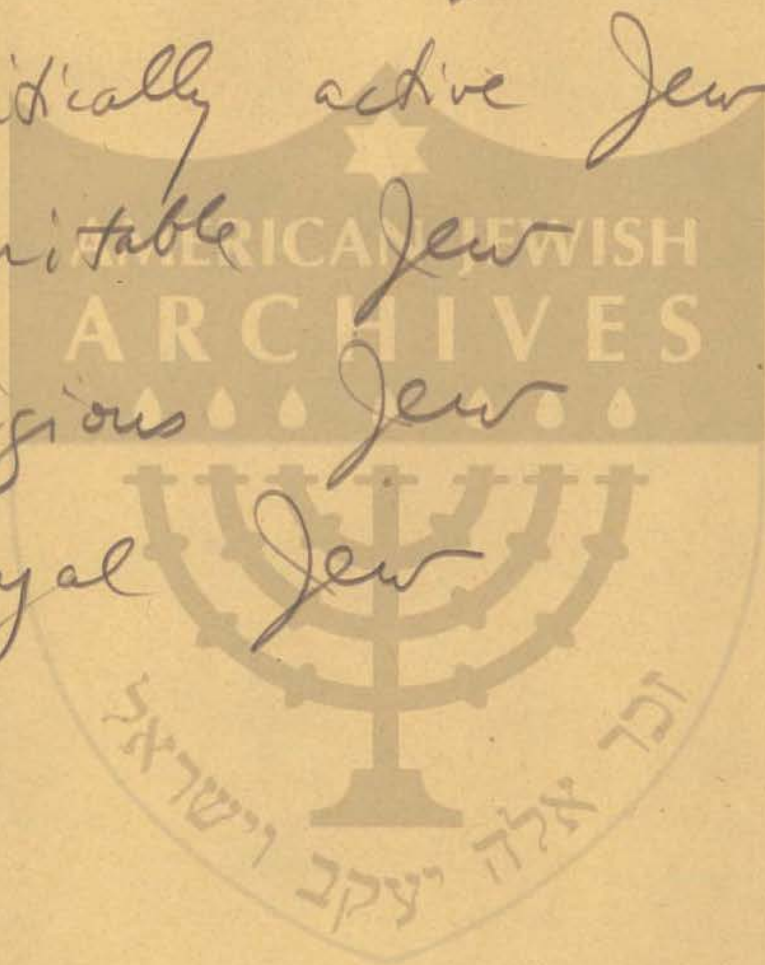 itically active Jew
ritable Jew
AMERICAN JEWISH
ARCHIVES
gious Jew
yal Jew
זכר אלה יעקב וישראל